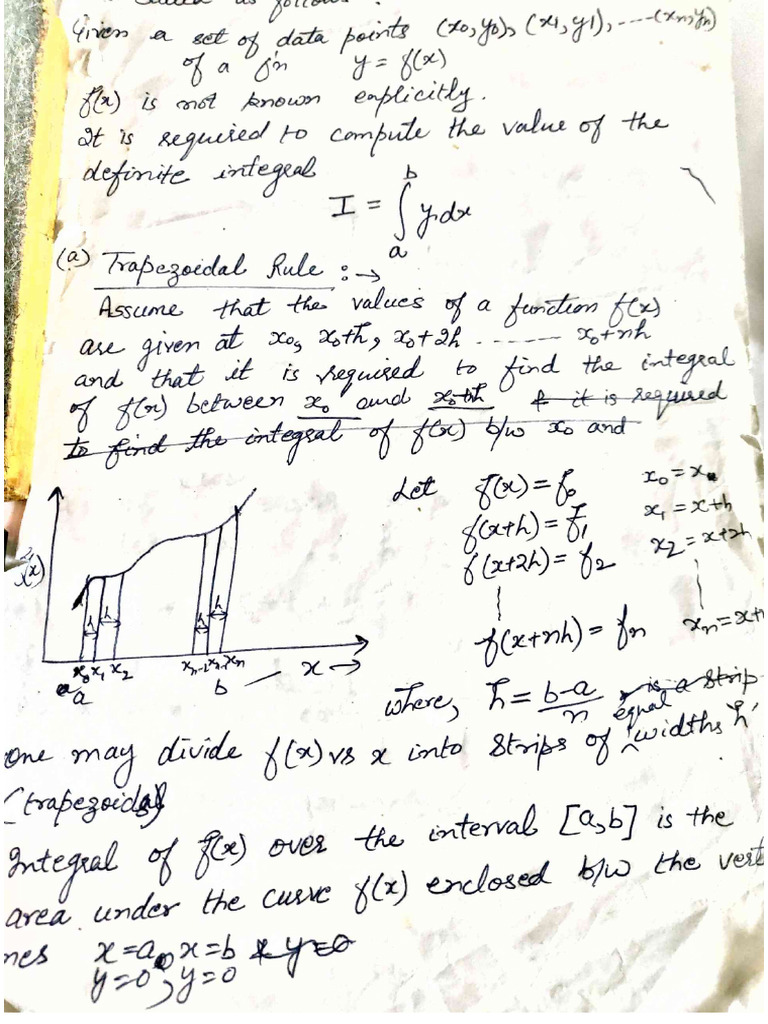 as follows :
Given a set of data points (x0,y0), (x1,y1), ----(xn,yn)
of a fn y = f(x)
f(x) is not known explicitly.
It is required to compute the value of the
definite integral
I = ∫ₐᵇ y dx
(a) Trapezoidal Rule :→
Assume that the values of a function f(x)
are given at x0, x0+h, x0+2h ------- x0+nh
and that it is required to find the integral
of f(x) between x0 and x0+nh & it is required
to find the integral of f(x) b/w x0 and
Let f(x) = f0 x0 = x
f(x+h) = f1 x1 = x+h
f(x+2h) = f2 x2 = x+2h
f(x+nh) = fn xn = x+
f(x)
h h h h
x0 x1 x2 xn-1 xn x →
a b
where, h = (b-a)/n is a strip
equal
one may divide f(x) vs x into strips of ^ widths 'h'
(trapezoids)
Integral of f(x) over the interval [a,b] is the
area under the curve f(x) enclosed b/w the vert
nes x=a, x=b & y=0
y=0, y=0